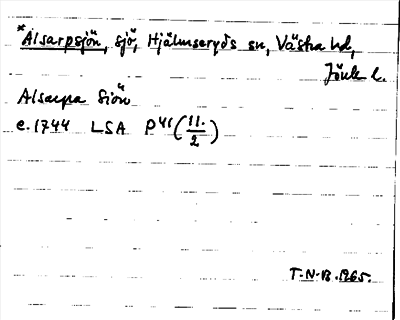 *Alsarpsjön, sjö, Hjälmseryds sn, Västra hd,
Jönk l.
Alsarpa Siön
c. 1744 LSA P41 (11./2)
T-N-B. 1965.